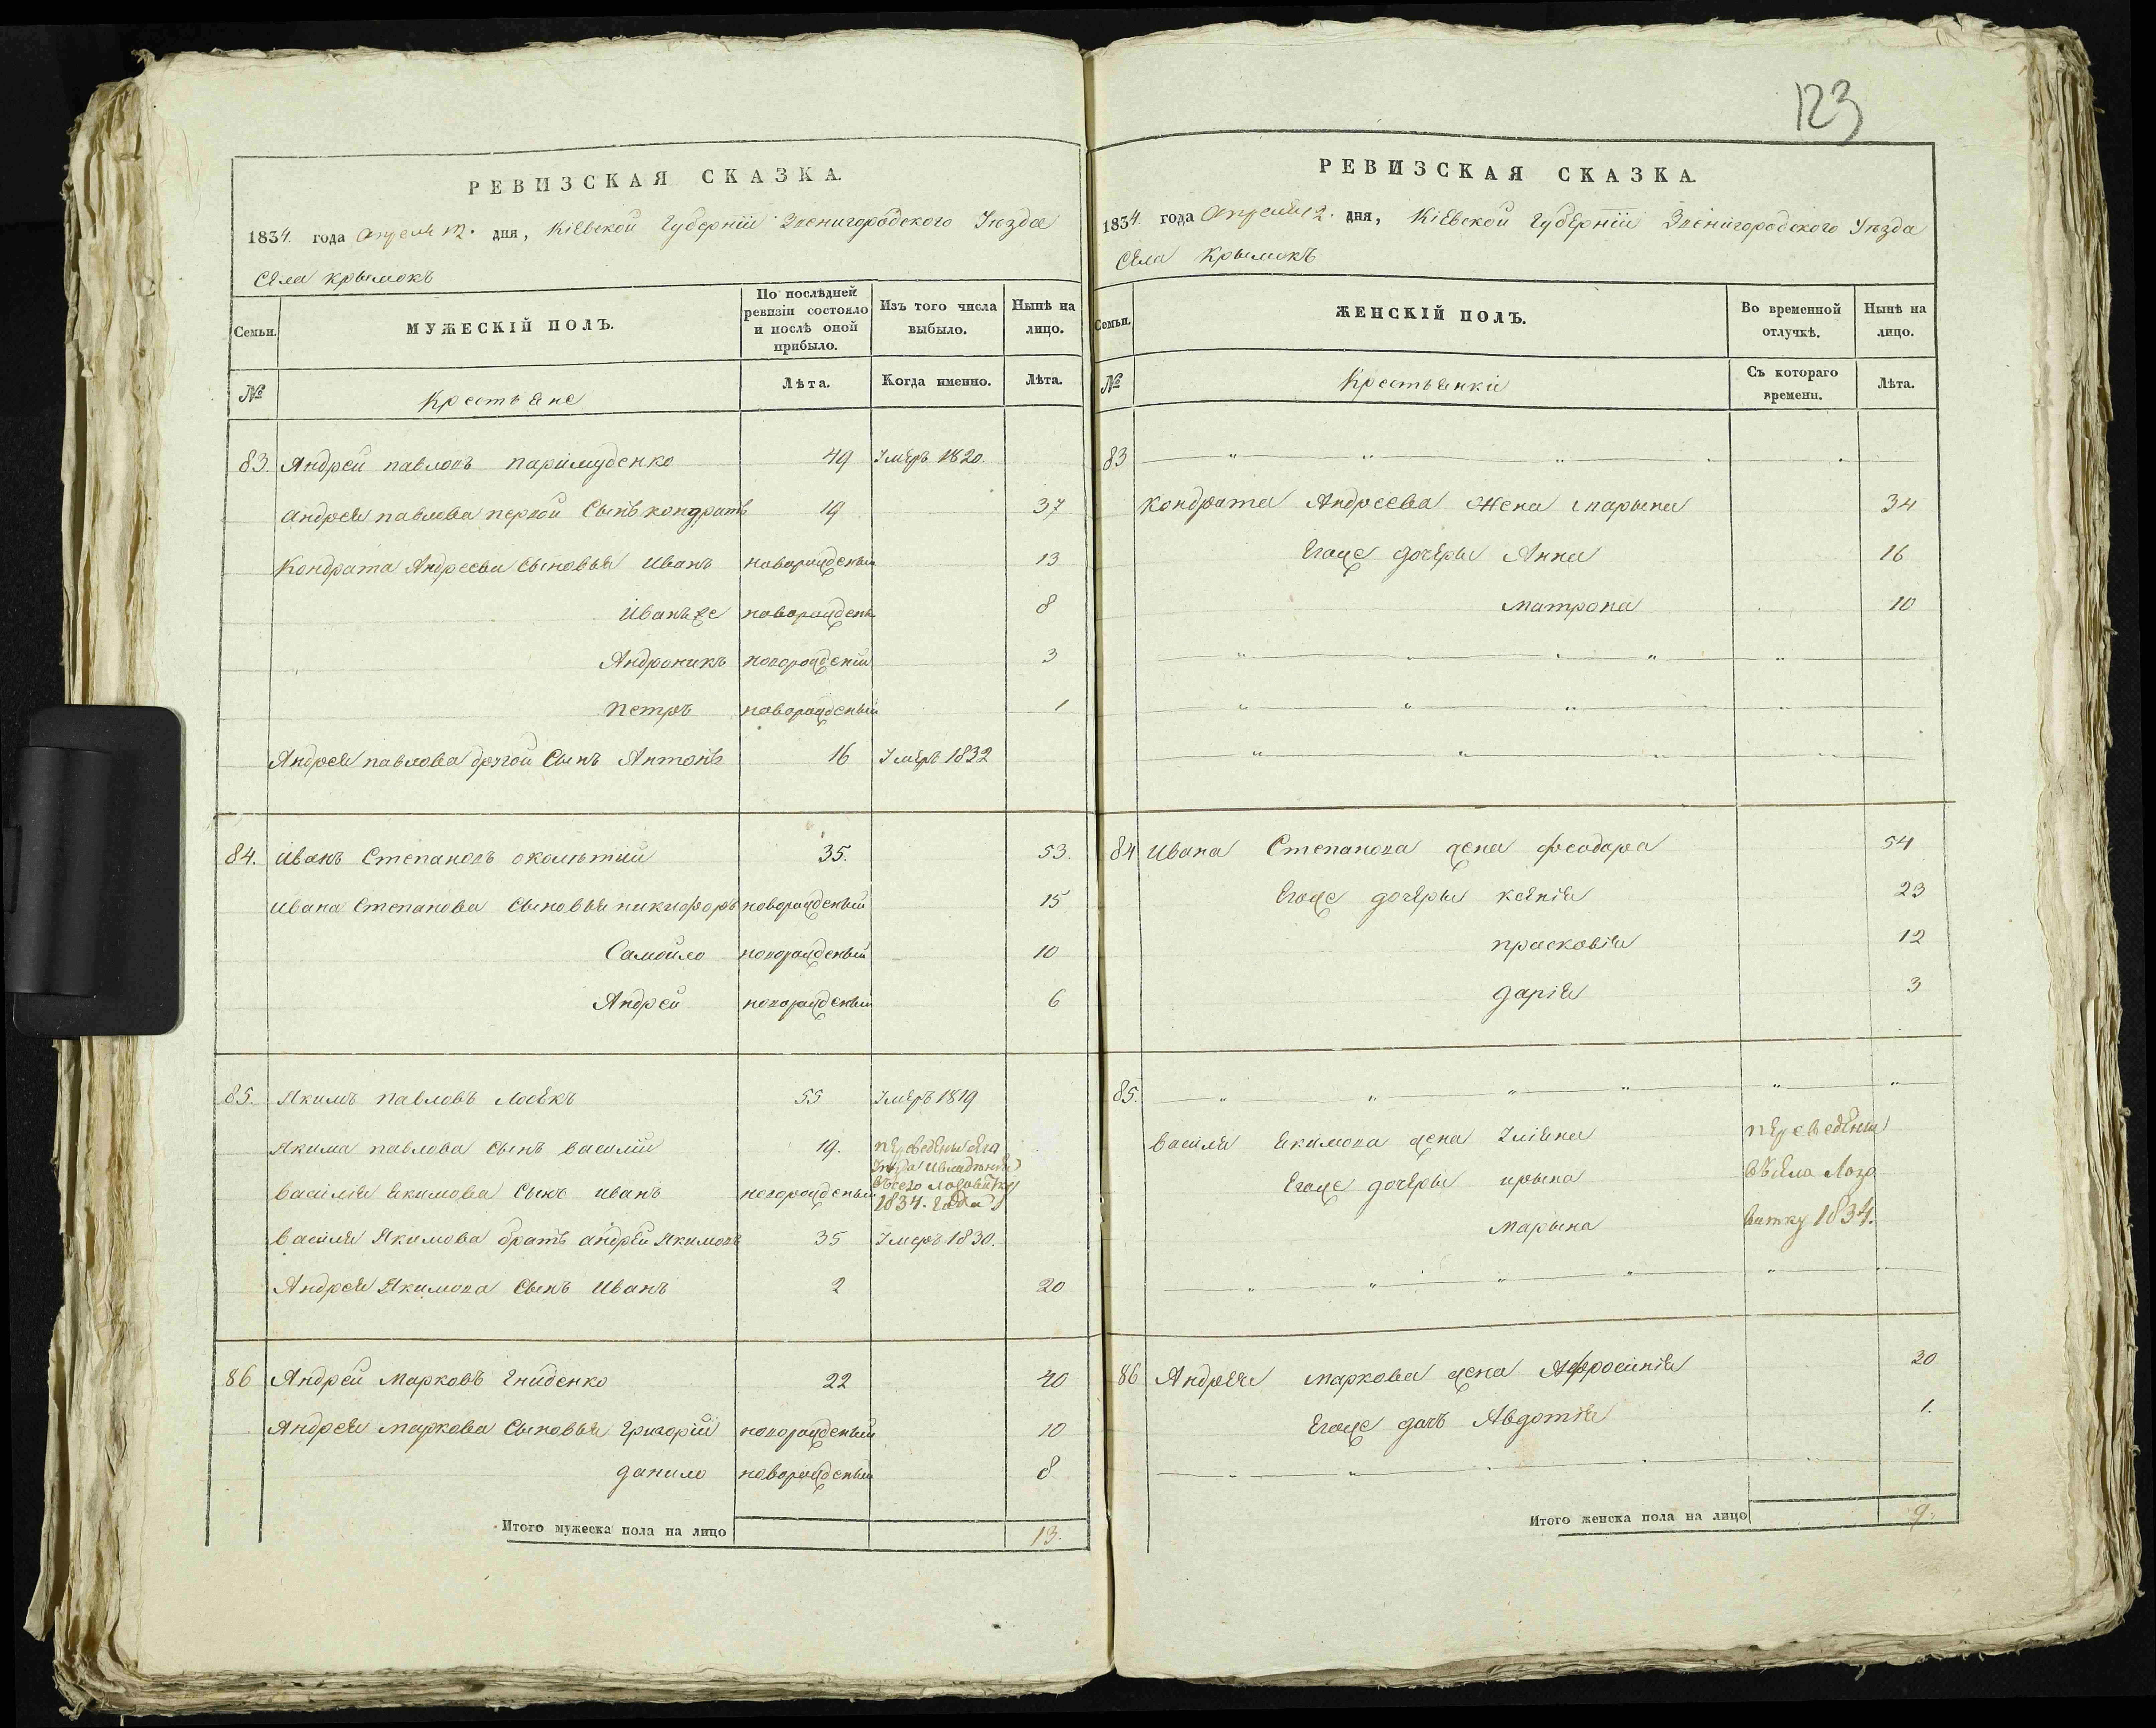 123
РЕВИЗСКАЯ СКАЗКА.
1834. года Апреля 12. дня, Кіевской Губерніи Звенигородского Уѣзда
Села Крымокъ
Семьи.
МУЖЕСКІЙ ПОЛЪ.
По послѣдней ревизіи состояло и послѣ оной прибыло.
Изъ того числа выбыло.
Нынѣ на лицо.
№
Крестьяне
Лѣта.
Когда именно.
Лѣта.
83. Андрей павловъ 49 Умеръ 1820.
Андрея павлова первой Сынъ кондратъ 19 37
Кондрата Андреева Сыновья Иванъ новорожденый 13
Иванъ же новорожден 8
Андроникъ новорожденій 3
Петръ новорожденый 1
Андрея павлова другой Сынъ Антонъ 16 Умеръ 1832
84. Иванъ Степановъ околѣтній 35. 53.
Ивана Степанова Сыновья никифоръ новорожденый 15
Самойло новорожденый 10
Андрей новорожденый 6
85. Якимъ павловъ 55 Умеръ 1819
Якима павлова Сынъ василій 19. переведены
василія Якимова Сынъ иванъ новорожденый 1834. года
василя Якимова братъ андрей Якимовъ 35 Умеръ 1830.
Андрея Якимова Сынъ Иванъ 2 20
86 Андрей Марковъ Гниденко 22 40
Андрея маркова Сыновья Григорій новорожденый 10
данило новорожденый 8
Итого мужеска пола на лицо 13.
РЕВИЗСКАЯ СКАЗКА.
1834. года Апреля 12. дня, Кіевской Губерніи Звенигородского Уѣзда
Села Крымокъ
Семьи.
ЖЕНСКІЙ ПОЛЪ.
Во временной отлучкѣ.
Нынѣ на лицо.
№
Крестьянки
Съ котораго времени.
Лѣта.
83
Кондрата Андреева Жена марына 34
Егоже дочеры Анна 16
матрона 10
84 Ивана Степанова жена феодора 54
Егоже дочеры ксенія 23
прасковія 12
дарія 3
85.
василя Екимова жена Уліяна переведены
Егоже дочеры ирына въ села Лозо
Марына ватку 1834.
86 Андрея маркова жена Афросинія 30
Егоже дочъ Авдотія 1.
Итого женска пола на лицо 9.